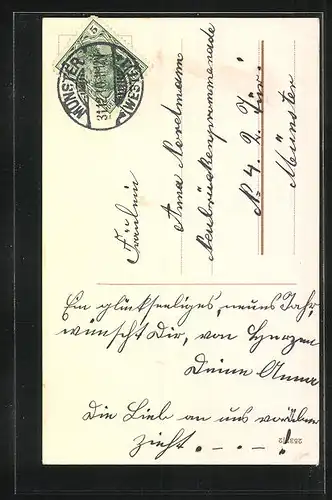 5
MÜNSTER
(WESTF.)
31.12.10.11-12V
Fräulein
Anna Nordmann
Neubrückenpromenade
No 4. 2 Tür.
Münster
Ein glückseeliges, neues Jahr,
wünscht Dir, von Herzen
Deine Anna
Die Lieb an uns vorüber
zieht. . - - . !